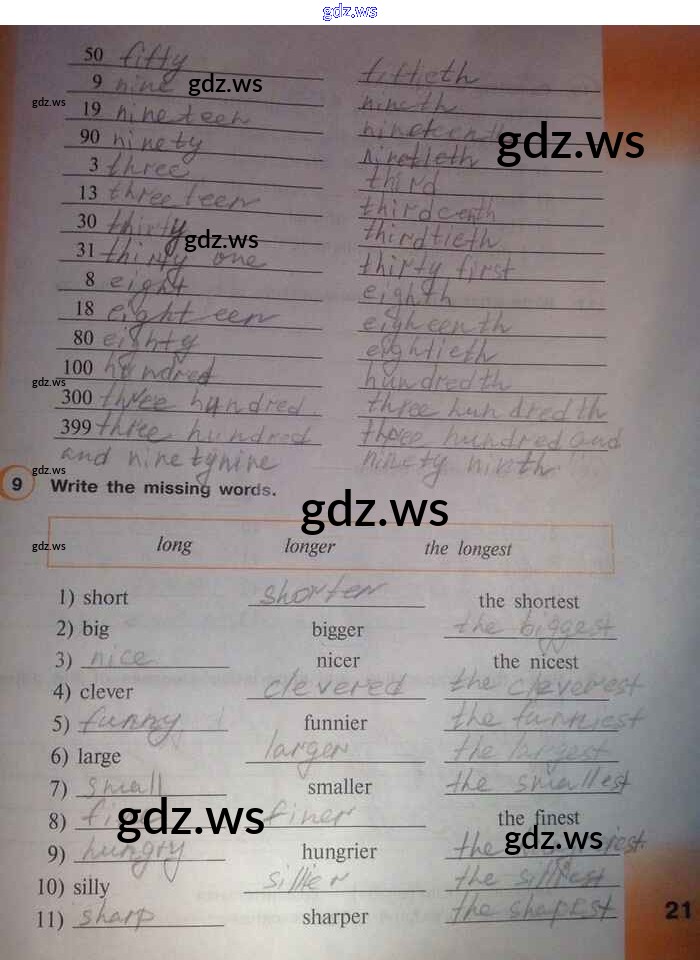 gdz.ws
50 fifty fiftieth
9 nine gdz.ws nineth
gdz.ws
19 nineteen
90 ninety ninetieth gdz.ws
3 three third
13 threeteen thirdcenth
30 thirty gdz.ws thirdtieth
31 thirty one thirty first
8 eight eighth
18 eighteen eigheenth
80 eighty eightieth
100 hundred hundredth
gdz.ws
300 three hundred three hundredth
399 three hundred three hundred and
and ninetynine ninety ninth
gdz.ws
9 Write the missing words.
gdz.ws
gdz.ws
long longer the longest
1) short shorter the shortest
2) big bigger the biggest
3) nice nicer the nicest
4) clever clevered the cleverest
5) funny funnier the funniest
6) large larger the largest
7) small smaller the smallest
8) finer the finest
gdz.ws
gdz.ws
9) hungry hungrier the
10) silly sillier the silliest
11) sharp sharper the shapest
21